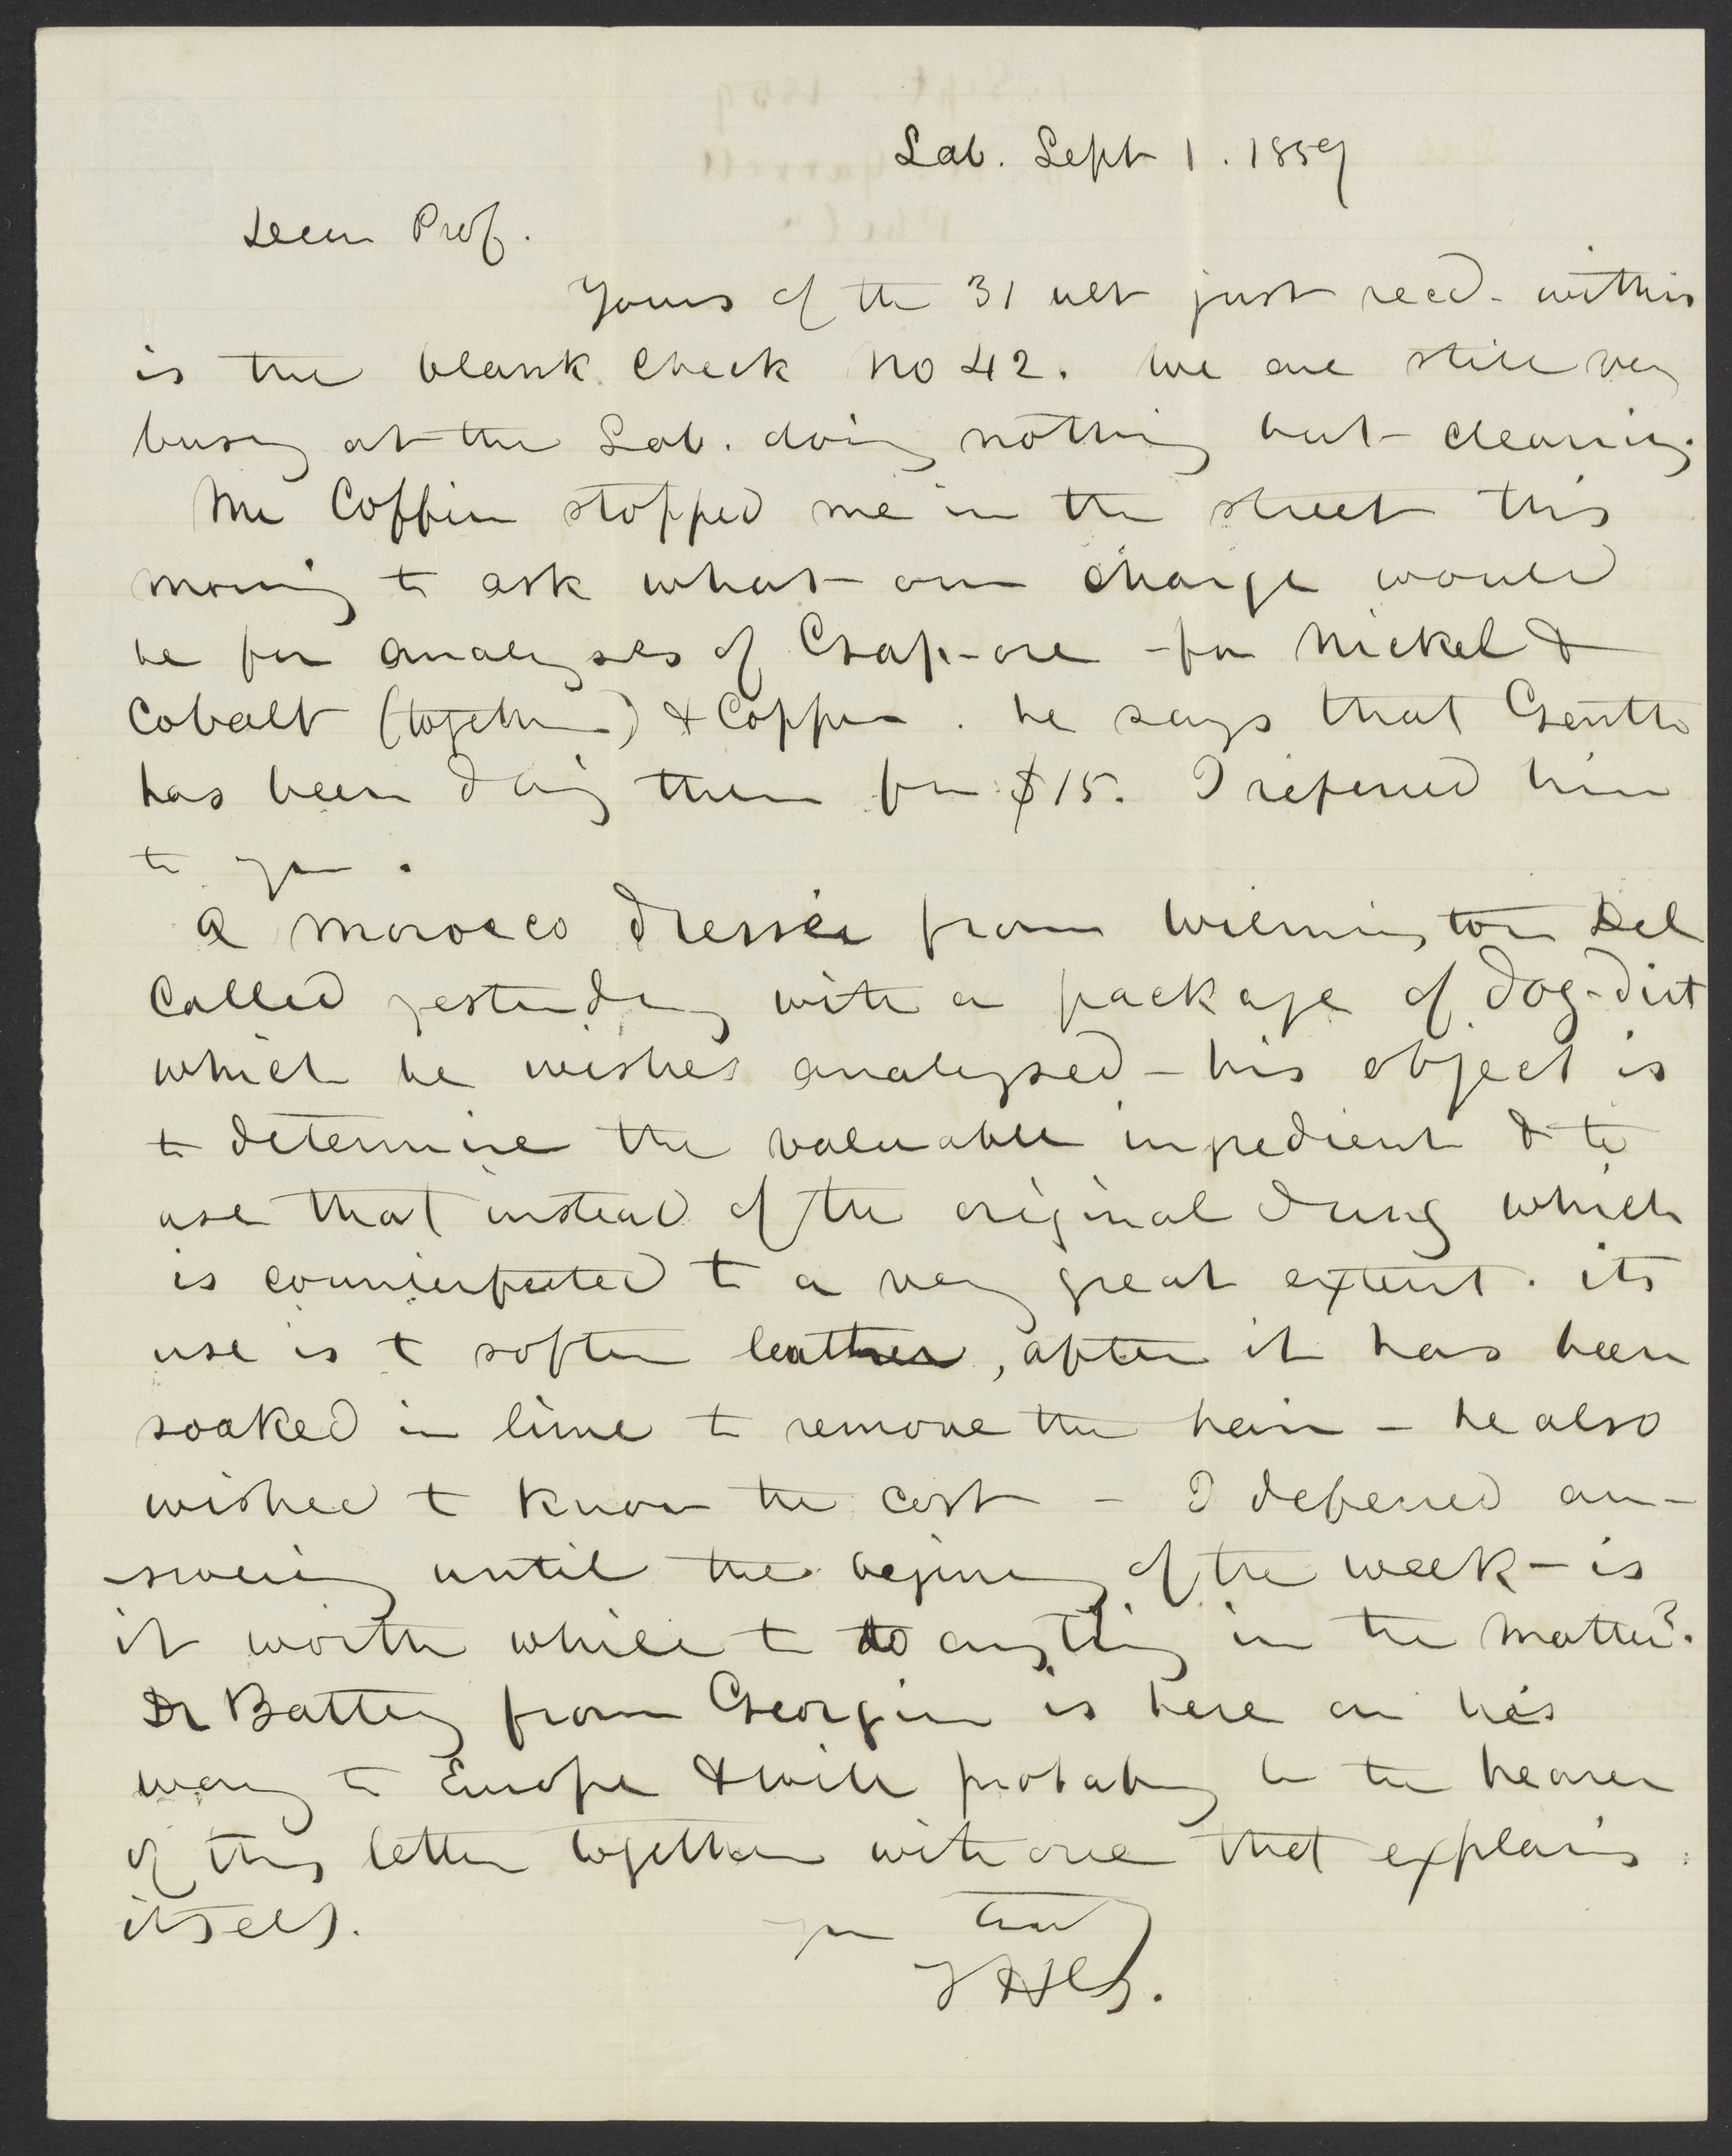 Lab. Sept 1. 1859
Dear Prof.
Yours of the 31 ult just recd. within
is the blank check No 42. we are still very
busy at the Lab. doing nothing but cleaning.
Mr Coffin stopped me in the street this
morning to ask what our charge would
be for analyses of Gap-ore - for Nickel &
Cobalt (together) & Copper. he says that Genth
has been doing them for $15. I referred him
to you.
A morocco dresser from Wilmington Del
Called yesterday with a package of dog-dirt
which he wishes analyzed - his object is
to determine the valuable ingredient & to
use that instead of the original dung which
is counterfeited to a very great extent. its
use is to soften leather, after it has been
soaked in lime to remove the hair - he also
wished to know the cost - I deferred an-
-swering until the begining of the week - is
it worth while to do anything in the matter?
Dr Battey from Georgia is here on his
way to Europe & will probably be the bearer
of this letter together with one that explains
itself.
Yrs truly